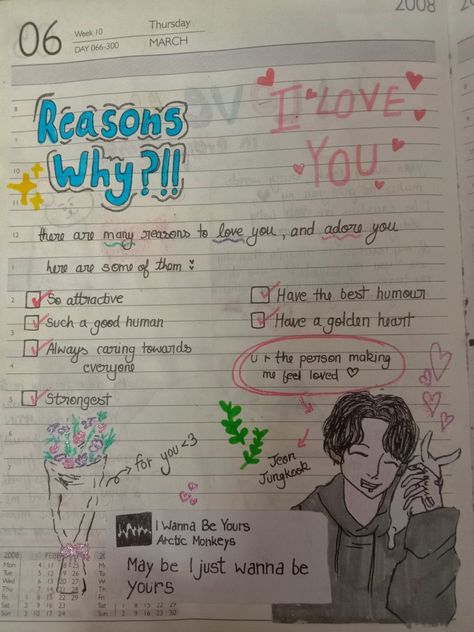 2008
06
Week 10
DAY 066-300
Thursday
MARCH
Reasons
Why?!!
I LOVE
YOU
there are many reasons to love you, and adore you
here are some of them
So attractive
Such a good human
Always caring towards
everyone
Strongest
Have the best humour
Have a golden heart
u r the person making
me feel loved ♡
for you <3
Jeon
Jungkook
I Wanna Be Yours
Arctic Monkeys
May be I just wanna be
yours
8
9
10
11
12
1
2
3
4
5
6
7
2008
Mon
Tue
Wed
Thu
Fri
Sat
Sun